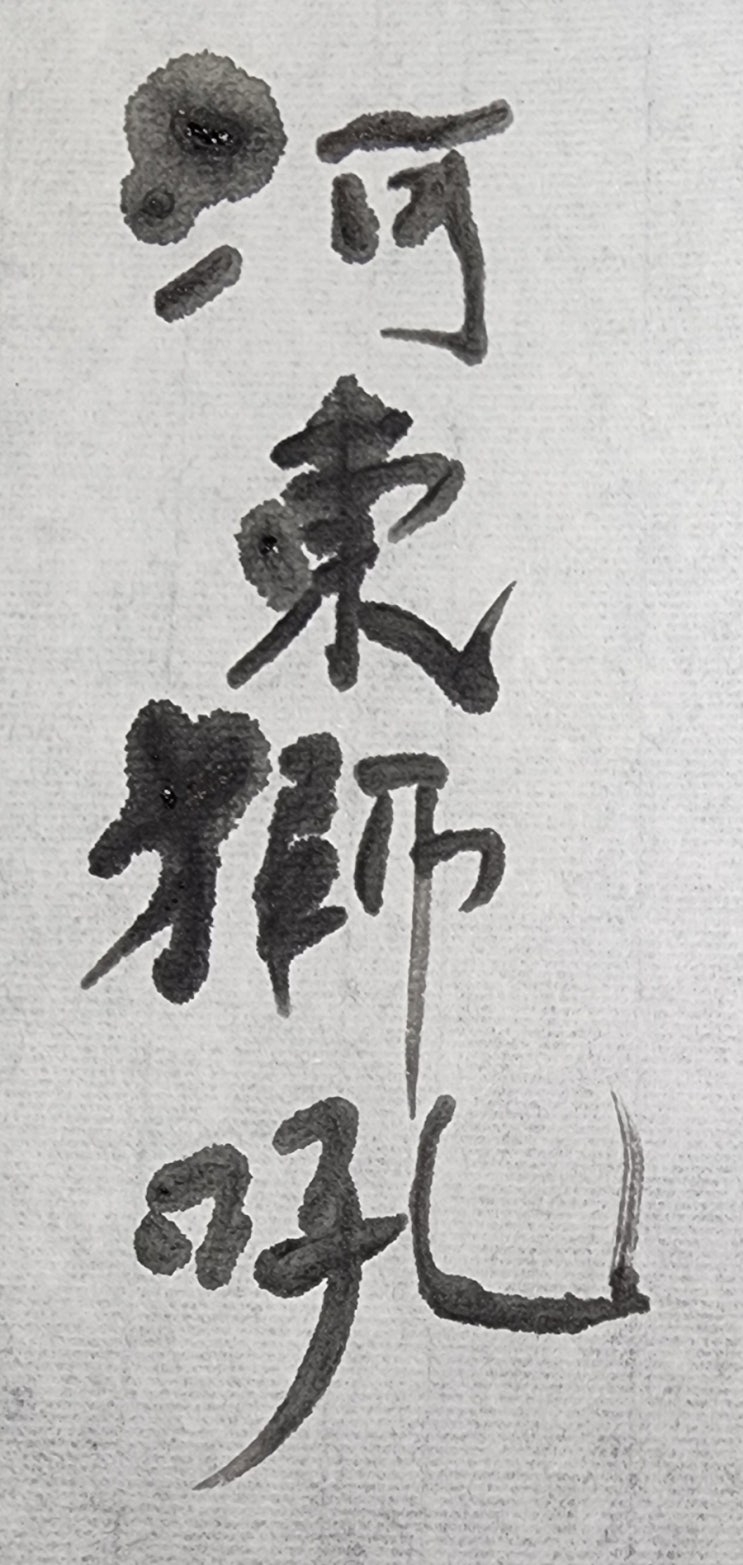 河東獅吼